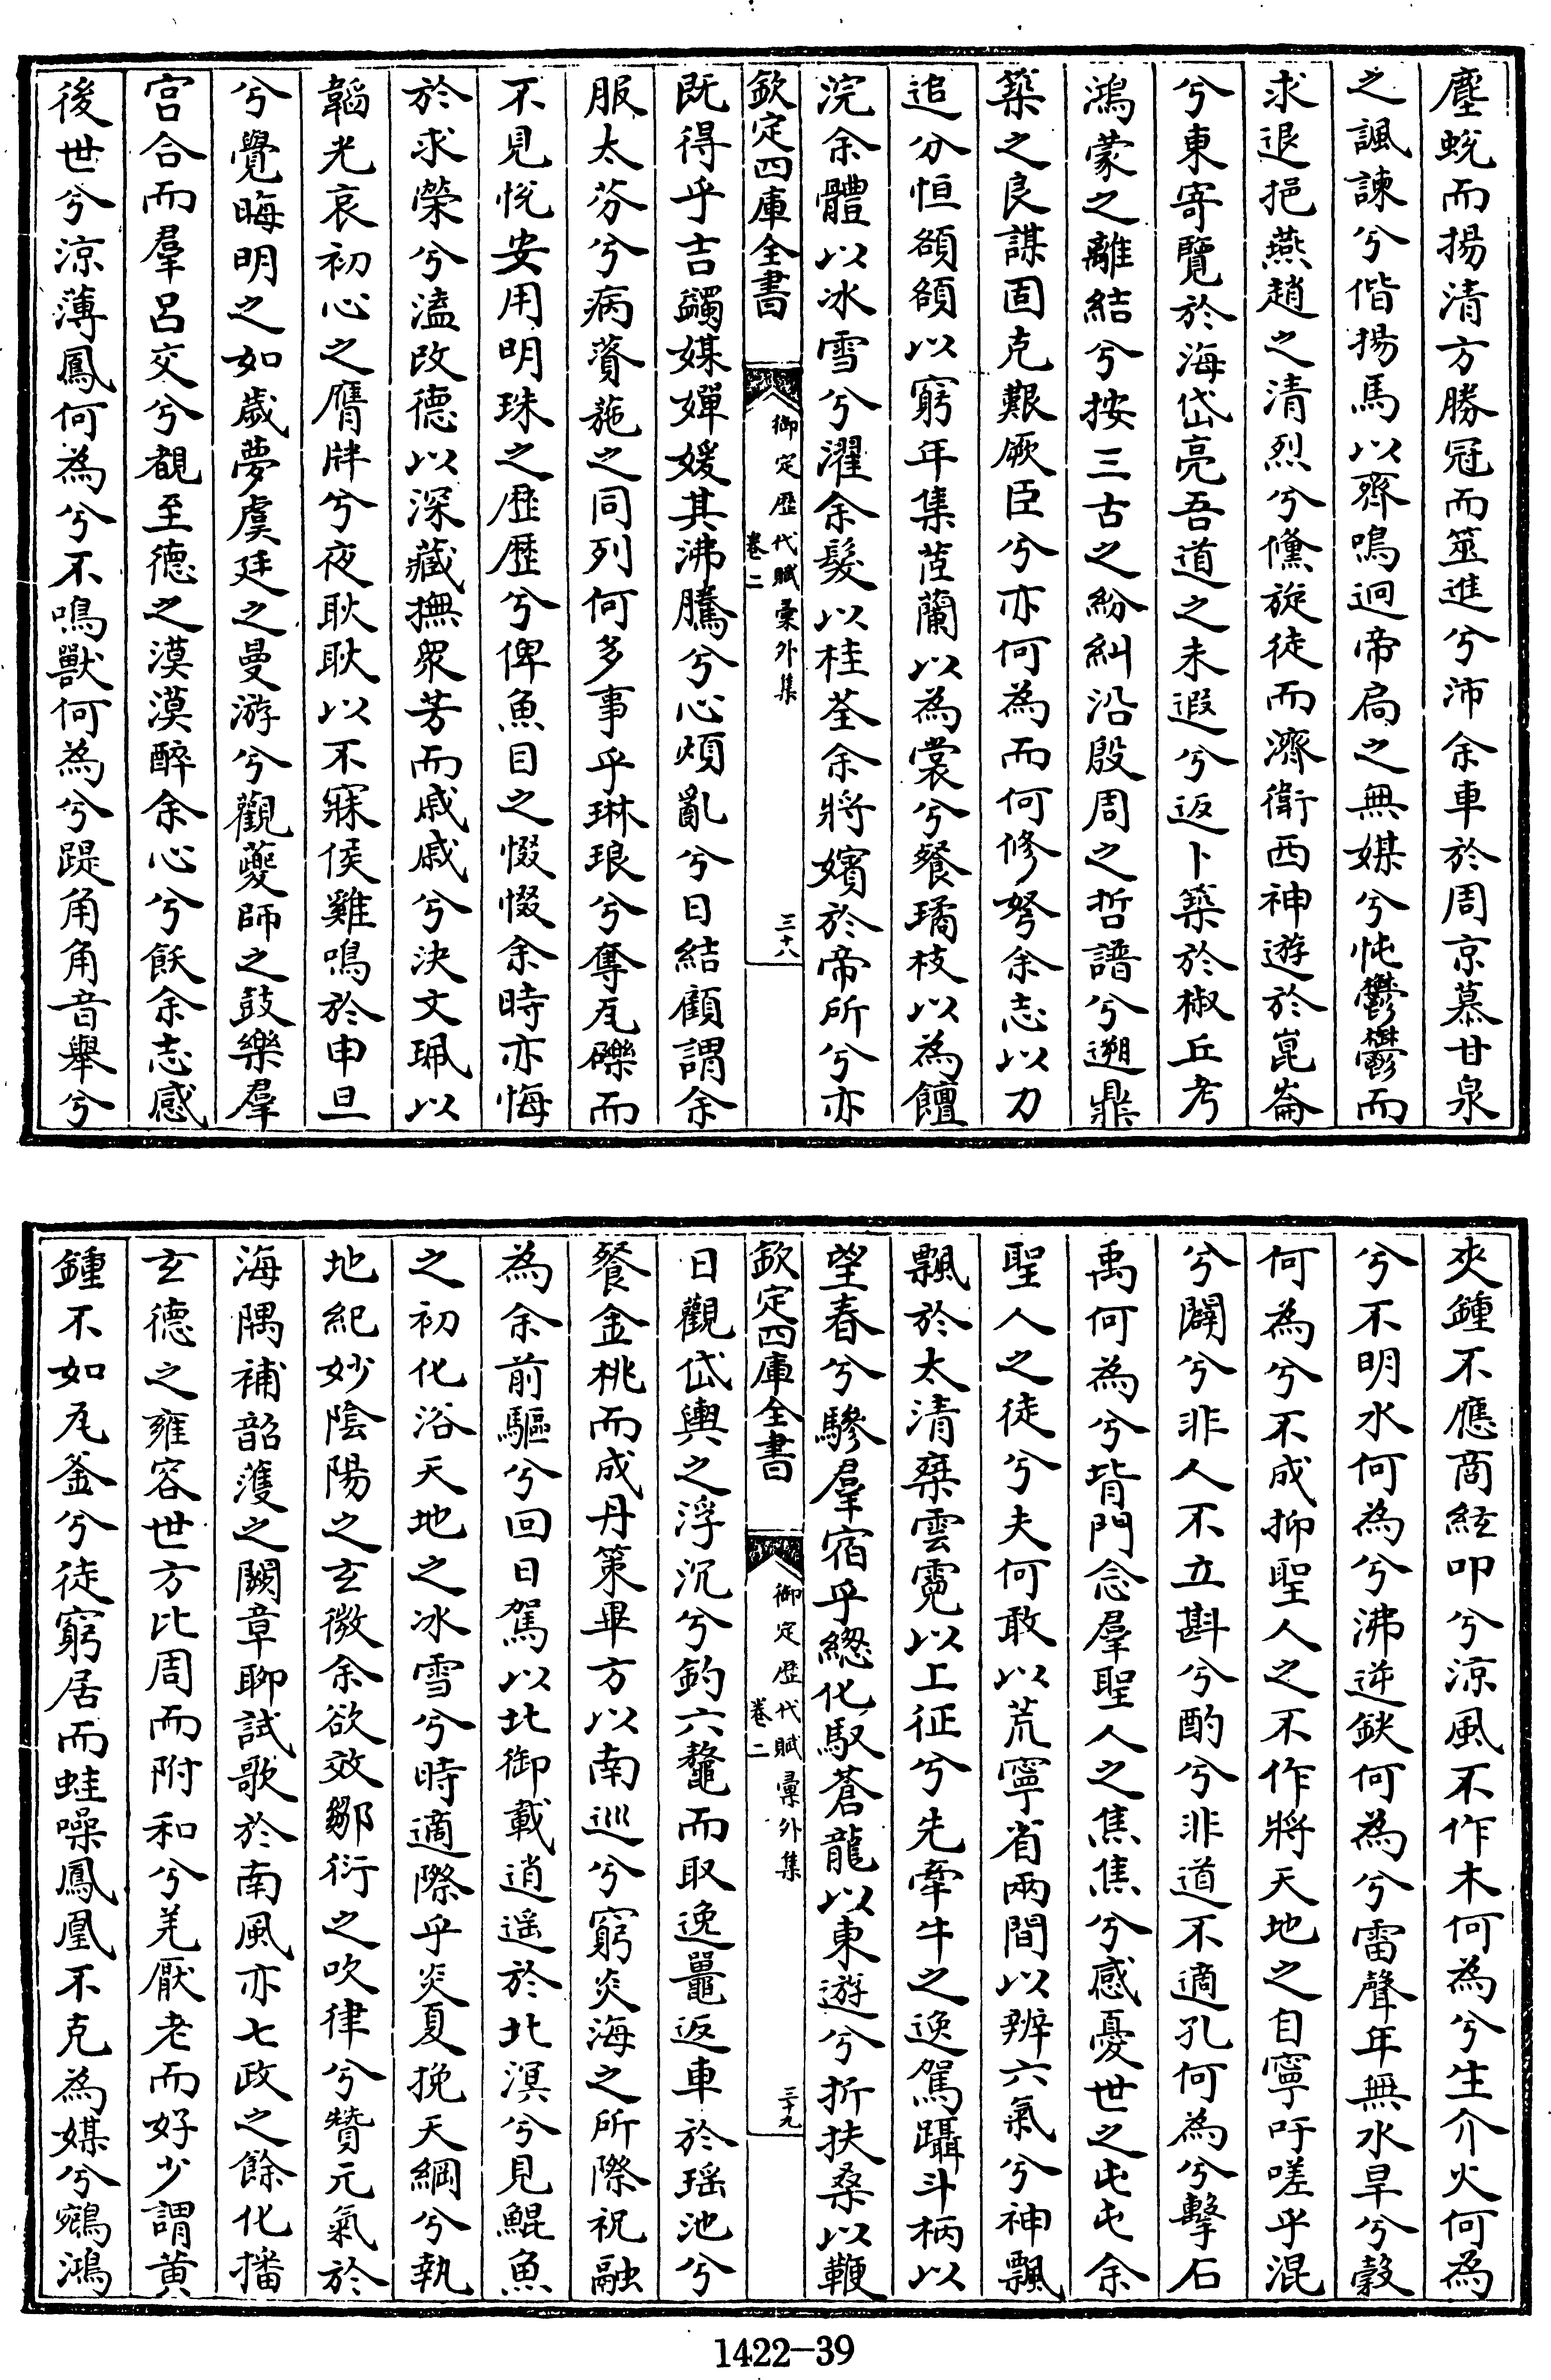 塵蛻而揚清方勝冠而筮進兮沛余車於周京慕甘泉
之諷諫兮偕揚馬以齊鳴迥帝扃之無媒兮忳鬱鬱而
求退挹燕趙之清烈兮儻旋徒而濟衛西神遊於崑崙
兮東寄覽於海岱亮吾道之未遐兮返卜築於椒丘考
鴻蒙之離結兮按三古之紛糾沿殷周之哲譜兮遡鼎
築之良謀固克艱厥臣兮亦何為而何修弩余志以力
追分恒頟頟以窮年集茝蘭以為裳兮餐璚枝以為饘
浣余體以冰雪兮濯余髮以桂荃余將嬪於帝所兮亦
欽定四庫全書 御定歷代賦彙外集 卷二 三十八
既得乎吉蠲媒嬋媛其沸騰兮心煩亂兮日結顧謂余
服太芬兮病薋葹之同列何多事乎琳琅兮奪瓦礫而
不見悅安用明珠之歷歷兮俾魚目之惙惙余時亦悔
於求榮兮溘改德以深藏撫眾芳而戚戚兮決文珮以
韜光哀初心之膺牉兮夜耿耿以不寐俟雞鳴於申旦
兮覺晦明之如歲夢虞廷之曼游兮觀夔師之鼓樂羣
宮合而羣呂交兮覩至德之漠漠醉余心兮飫余志感
後世兮涼薄鳳何為兮不鳴獸何為兮踶角角音舉兮
夾鍾不應商絃叩兮涼風不作木何為兮生介火何為
兮不明水何為兮沸逆鈌何為兮雷聲年無水旱兮穀
何為兮不成抑聖人之不作將天地之自寧吁嗟乎混
兮闢兮非人不立斟兮酌兮非道不適孔何為兮擊石
禹何為兮背門念羣聖人之焦焦兮感憂世之屯屯余
聖人之徒兮夫何敢以荒寧省兩間以辨六氣兮神飄
飄於太清棄雲霓以上征兮先牽牛之逸駕躡斗柄以
望春兮驂羣宿乎總化馭蒼龍以東遊兮折扶桑以鞭
欽定四庫全書 御定歷代賦彙外集 卷二 三十九
日觀岱輿之浮沉兮釣六鼇而取逸鼉返車於瑤池兮
餐金桃而成丹策畢方以南巡兮窮炎海之所際祝融
為余前驅兮回日駕以北御載逍遥於北溟兮見鯤魚
之初化浴天地之冰雪兮時適際乎炎夏挽天綱兮執
地紀妙陰陽之玄微余欲效鄒衍之吹律兮贊元氣於
海隅補韶濩之闕章聊試歌於南風亦七政之餘化播
玄德之雍容世方比周而附和兮羌厭老而好少謂黃
鍾不如瓦釜兮徒窮居而蛙噪鳳凰不克為媒兮鵷鴻
1422-39